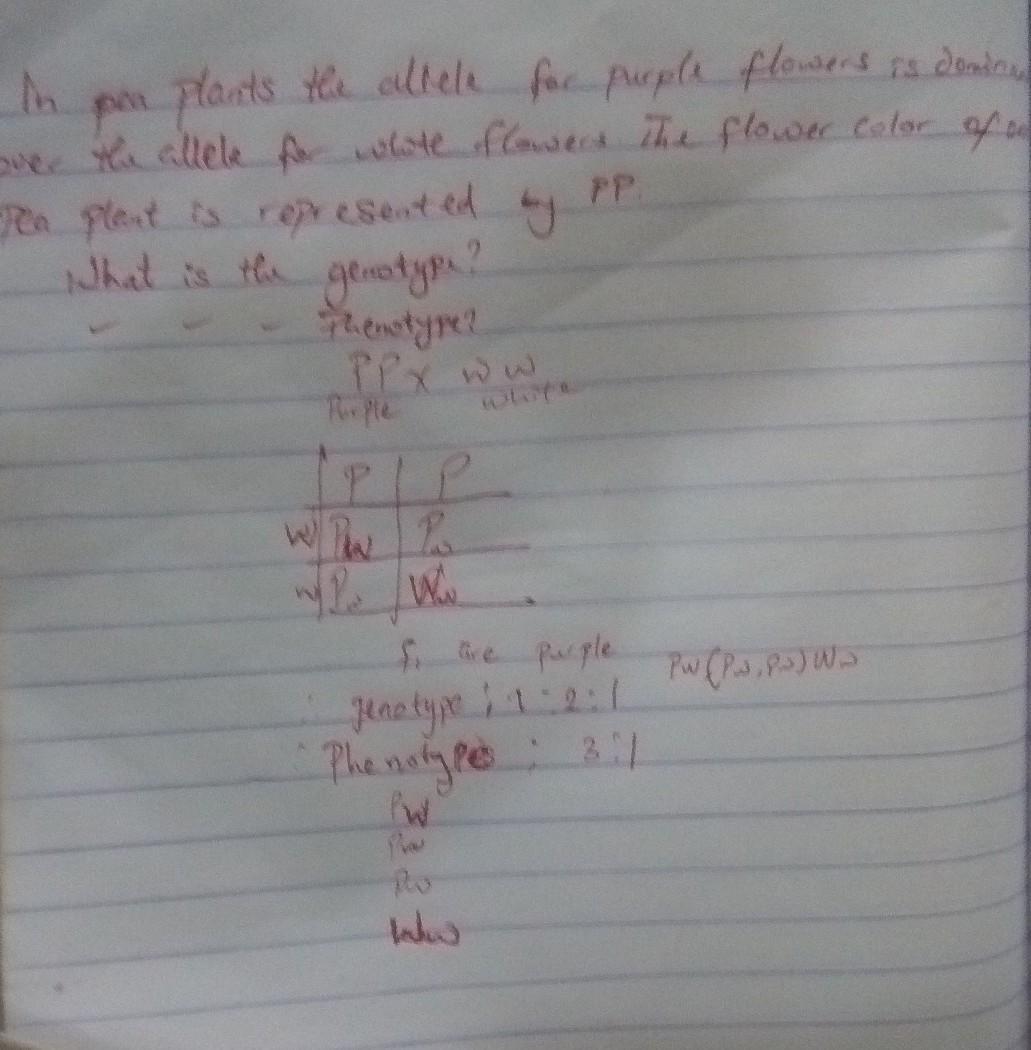 In pea plants the allele for purple flowers is domina
over the allele for white flowers The flower color of a
Pea plant is represented by PP.
What is the genotype?
- - - Phenotype?
PP x ww
Purple white
P P
w Pw Pw
w Pw Ww
F1 are purple Pw (Pw, Pw) Ww
genotype ; 1 : 2 : 1
Phenotypes : 3 : 1
Pw
Pw
Pw
Ww